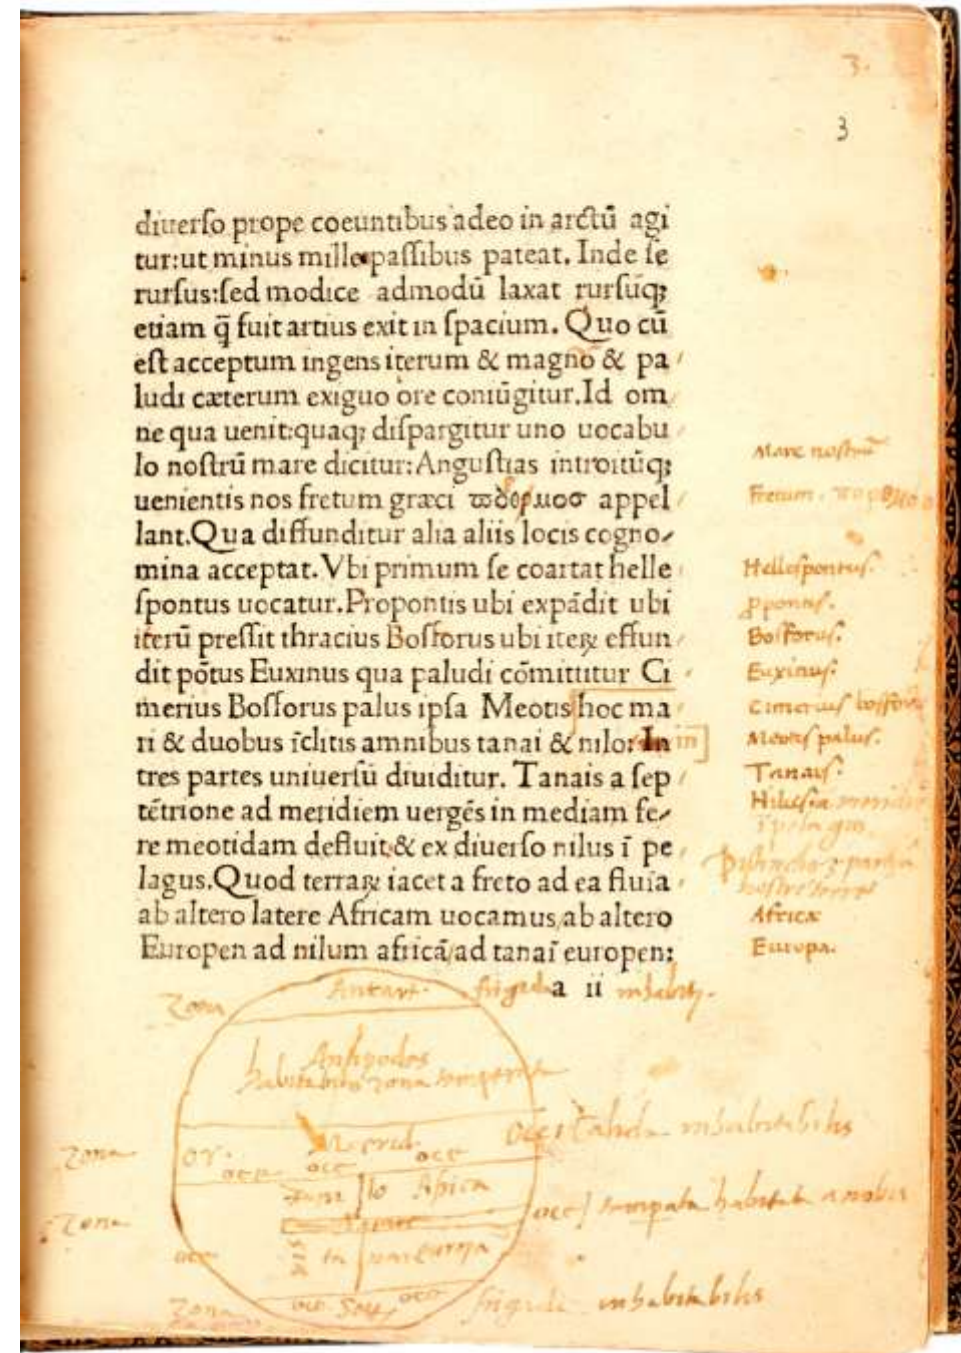 3.
3
diuerſo prope coeuntibus adeo in arctū agi
tur:ut minus mille paſſibus pateat. Inde ſe
rurſus:ſed modice admodū laxat rurſūqꝫ
etiam q̄ fuit artius exit in ſpacium. Quo cū
eſt acceptum ingens iterum & magno & pa
ludi cæterum exiguo ore coniūgitur.Id om
ne qua uenit:quaqꝫ diſpargitur uno uocabu
lo noſtrū mare dicitur:Anguſtias introitūqꝫ
uenientis nos fretum græci appel
lant.Qua diffunditur alia aliis locis cogno
mina acceptat.Vbi primum ſe coartat helle
ſpontus uocatur.Propontis ubi expādit ubi
iterū preſſit thracius Boſforus ubi iteꝝ effun
dit pōtus Euxinus qua paludi cōmittitur Ci
merius Boſſorus palus ipſa Meotis hoc ma
ri & duobus īclitis amnibus tanai & nilo: In
tres partes uniuerſū diuiditur. Tanais a ſep
tētrione ad meridiem uergēs in mediam fe
re meotidam defluit:& ex diuerſo nilus ī pe
lagus.Quod terraꝝ iacet a freto ad ea fluia
ab altero latere Africam uocamus,ab altero
Europen ad nilum africā/ad tanaī europen:
a ii
Mare noſtrū
Fretum.
Helleſpontuſ.
Boſforuſ.
Euxinuſ.
Cimeriuſ boſforu
Meotiſ paluſ.
Tanaiſ.
Africa
Europa.
Zona Antart. frigida inhabit.
Antipodes
habitabilis zona temperata
Zona or. Merid. occ Calida inhabitabilis
oce oce oce
Africa
Zona occ temperata habitata a nobis
oce Europa
oce Sept. oce
Zona frigida inhabitabilis